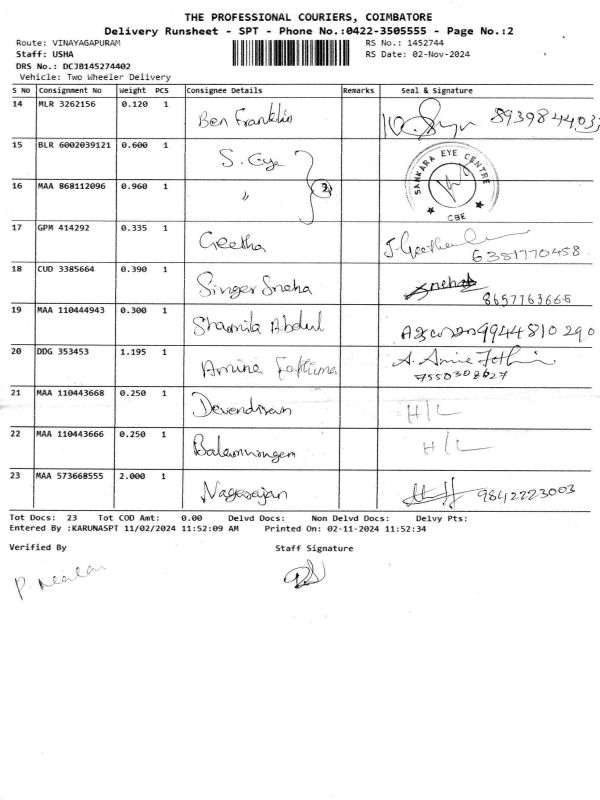 THE PROFESSIONAL COURIERS, COIMBATORE
Delivery Runsheet - SPT - Phone No.:0422-3505555 - Page No.:2
Route: VINAYAGAPURAM RS No.: 1452744
Staff: USHA RS Date: 02-Nov-2024
DRS No.: DCJB145274402
Vehicle: Two Wheeler Delivery
S No Consignment No Weight PCS Consignee Details Remarks Seal & Signature
14 MLR 3262156 0.120 1 Ben Franklin
15 BLR 6002039121 0.600 1 S. Eye SANKARA EYE CENTRE
16 MAA 868112096 0.960 1 〃 2 CBE
17 GPM 414292 0.335 1 Geetha J. Geetha 6381770458
18 CUD 3385664 0.390 1 Singer Sneha Sneha 8657763666
19 MAA 110444943 0.300 1 Sharmila Abdul 9944810290
20 DDG 353453 1.195 1 Amina Fathima A. 7550308627
21 MAA 110443668 0.250 1 Devendiran H/L
22 MAA 110443666 0.250 1 H/L
23 MAA 573668555 2.000 1 Nagarajan 9842223003
Tot Docs: 23 Tot COD Amt: 0.00 Delvd Docs: Non Delvd Docs: Delvy Pts:
Entered By :KARUNASPT 11/02/2024 11:52:09 AM Printed On: 02-11-2024 11:52:34
Verified By Staff Signature